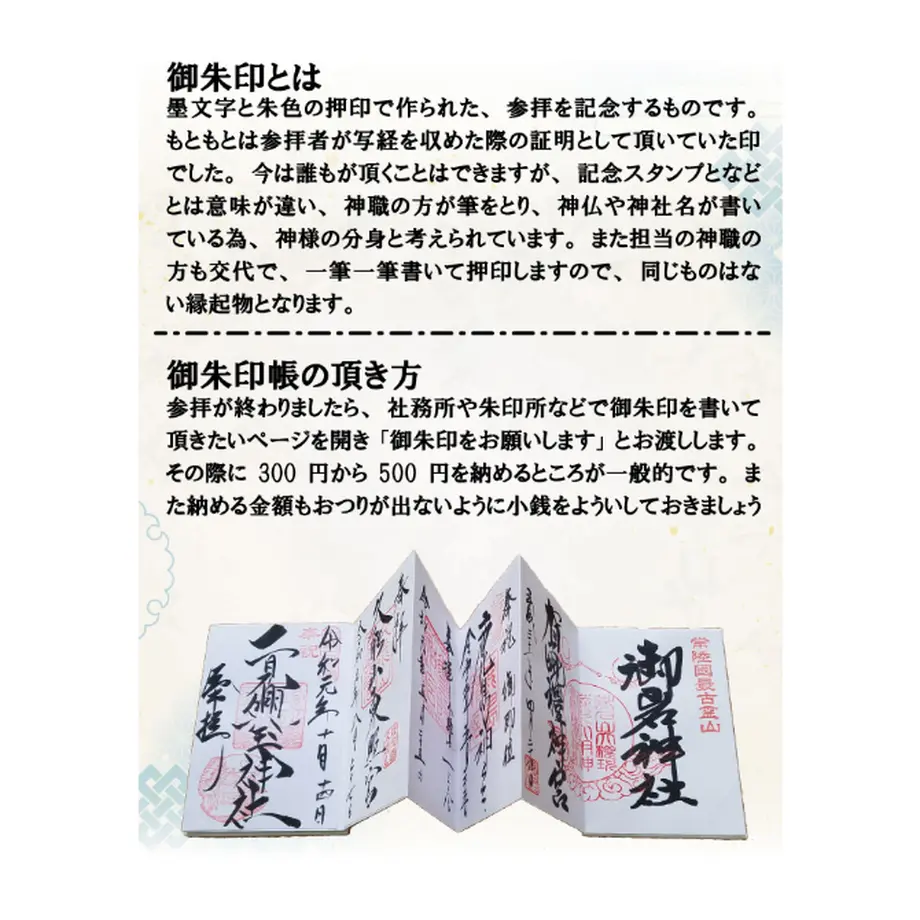 御朱印とは
墨文字と朱色の押印で作られた、参拝を記念するものです。
もともとは参拝者が写経を収めた際の証明として頂いていた印
でした。今は誰もが頂くことはできますが、記念スタンプとなど
とは意味が違い、神職の方が筆をとり、神仏や神社名が書い
ている為、神様の分身と考えられています。また担当の神職の
方も交代で、一筆一筆書いて押印しますので、同じものはな
い縁起物となります。
御朱印帳の頂き方
参拝が終わりましたら、社務所や朱印所などで御朱印を書いて
頂きたいページを開き「御朱印をお願いします」とお渡しします。
その際に 300 円から 500 円を納めるところが一般的です。ま
た納める金額もおつりが出ないように小銭をよういしておきましょう
常陸國最古霊山
御岩神社
令和元年十月十四日
奉拝